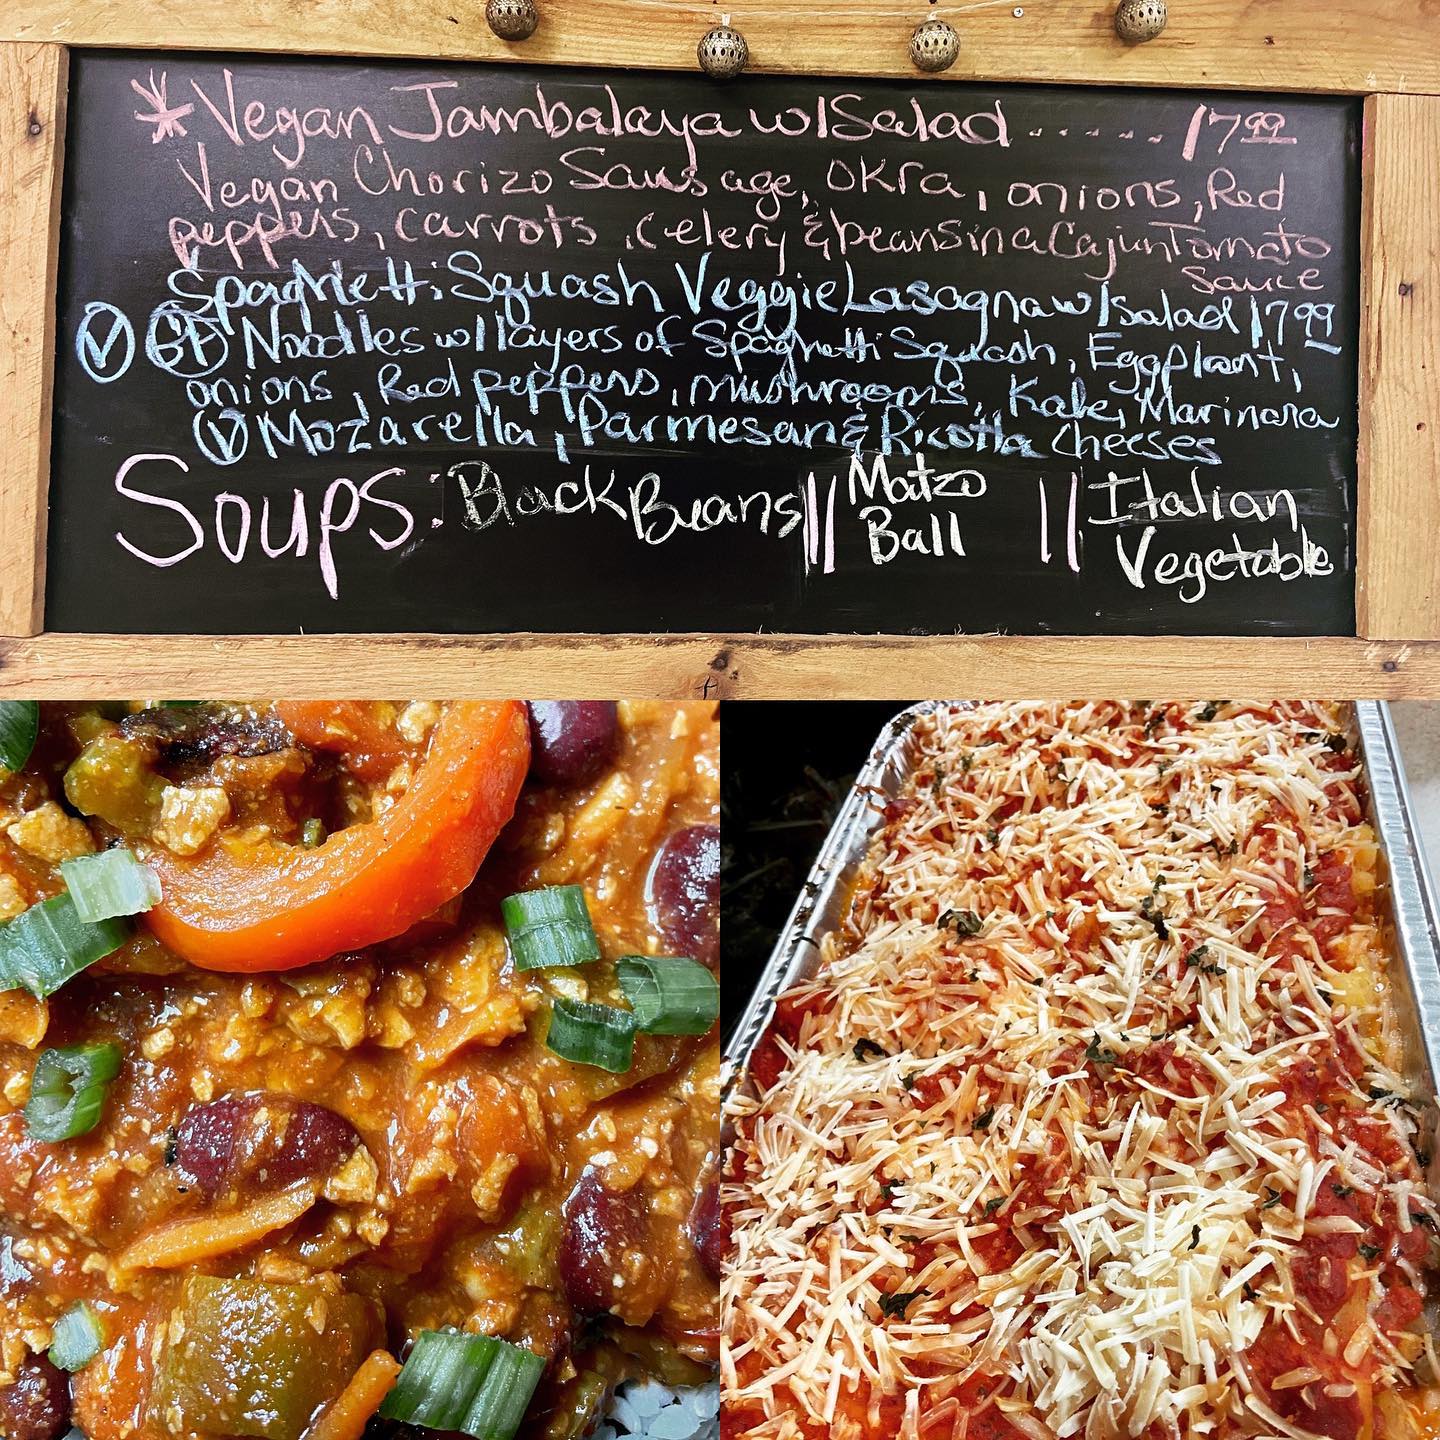 * Vegan Jambalaya w/Salad ...... 17 99
Vegan Chorizo Sausage, OKra, onions, Red
peppers, carrots, celery & beans in a Cajun Tomato
Sauce
Spaghetti Squash Veggie Lasagna w/salad 17 99
V GF Noodles w/layers of Spaghetti Squash, Eggplant,
onions, Red peppers, mushrooms, Kale, Marinara
V Mozarella, Parmesan & Ricotta Cheeses
Soups: Black Beans || Matzo Ball || Italian Vegetable